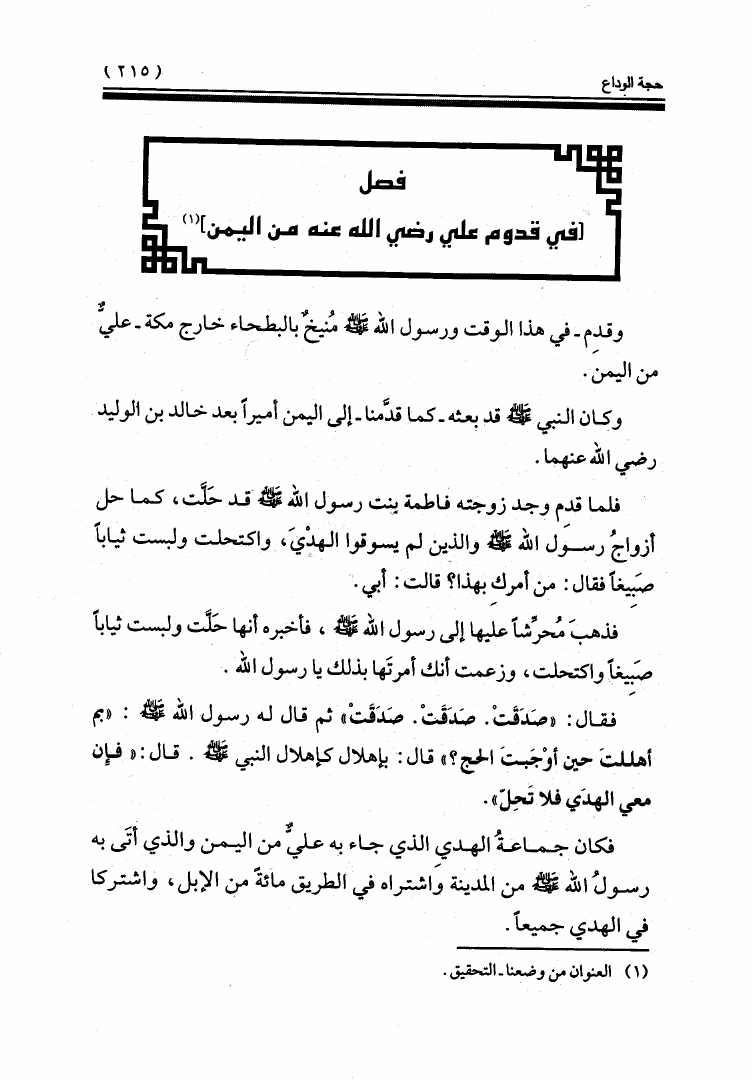 حجة الوداع
(٢١٥)
فصل
[في قدوم علي رضي الله عنه من اليمن](١)
وقدِم ـ في هذا الوقت ورسول الله ﷺ مُنيخٌ بالبطحاء خارج مكة ـ عليٌّ
من اليمن.
وكان النبي ﷺ قد بعثه ـ كما قدَّمنا ـ إلى اليمن أميراً بعد خالد بن الوليد
رضي الله عنهما.
فلما قدِم وجد زوجته فاطمة بنت رسول الله ﷺ قد حَلَّت، كما حل
أزواجُ رسول الله ﷺ والذين لم يسوقوا الهدْيَ، واكتحلت ولبست ثياباً
صَبِيغاً فقال: من أمركِ بهذا؟ قالت: أبي.
فذهبَ مُحرِّشاً عليها إلى رسول الله ﷺ ، فأخبره أنها حَلَّت ولبست ثياباً
صَبِيغاً واكتحلت، وزعمت أنك أمرتَها بذلك يا رسول الله .
فقال: «صَدَقَتْ. صَدَقَتْ. صَدَقَتْ» ثم قال له رسول الله ﷺ : «بم
أهللتَ حين أوْجَبتَ الحج؟» قال: بإهلال كإهلال النبي ﷺ . قال:« فإن
معي الهدَي فلا تَحِلّ».
فكان جماعةُ الهدي الذي جاء به عليٌّ من اليمن والذي أتَى به
رسولُ الله ﷺ من المدينة واشتراه في الطريق مائةً من الإبل، واشتركا
في الهدي جميعاً.
(١) العنوان من وضعنا ـ التحقيق.